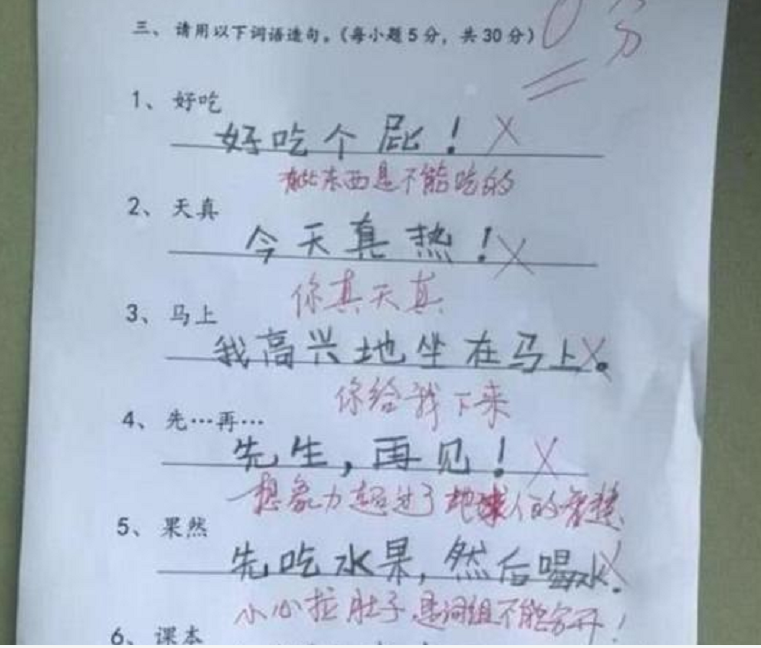 三、请用以下词语造句。(每小题5分,共30分)
0分
1、好吃
好吃个屁!
有些东西是不能吃的
2、天真
今天真热!
你真天真
3、马上
我高兴地坐在马上。
你给我下来
4、先…再…
先生,再见!
想象力超过了地球人的智慧
5、果然
先吃水果,然后喝水.
小心拉肚子.是词组不能分开!
6、课本